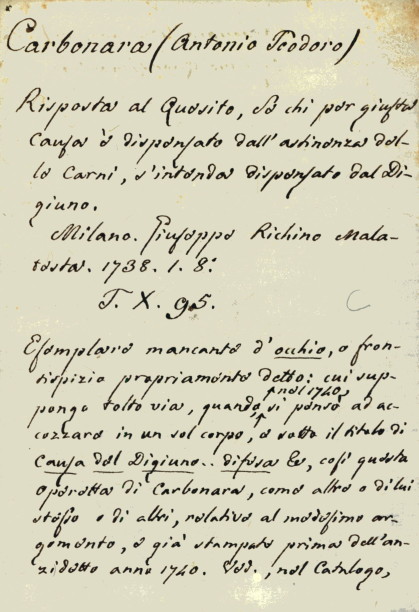 Carbonara (Antonio Teodoro)
Risposta al Quesito, Se chi per giusta
Causa è dispensato dall'astinenza del-
le Carni, s'intenda dispensato dal Di-
giuno.
Milano. Giuseppe Richino Mala-
testa. 1738. 1. 8º
T. X. 95.
Esemplare mancante d'occhio, o fron-
tispizio propriamente detto: cui sup-
pongo tolto via, quando, nel 1740, si pensò ad ac-
cozzare in un sol corpo, e sotto il titolo di
Causa del Digiuno.. difesa &c, così questa
operetta di Carbonara, come altre o di lui
stesso o di altri, relative al medesimo ar-
gomento, e già stampate prima dell'an-
zidetto anno 1740. Ved., nel Catalogo,